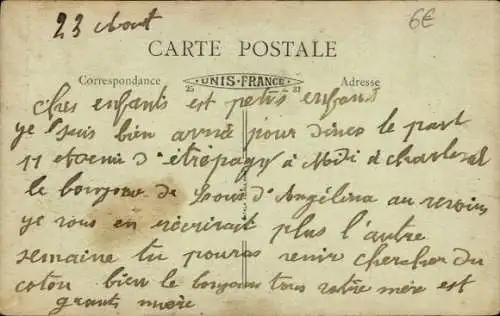 23 Aout
6€
CARTE POSTALE
Correspondance
UNIS-FRANCE
25 31
Adresse
Ches enfants est petis enfant
ye suis bien arrivé pour dines le part
11 et d'étrépagy à Midi é charleval
le bonjour de d'Angélina au revoir
ye vous en récrirait plus l'autre
semaine tu pouras venir chercher du
coton bien le bonjour tous votre mère est
grants mère